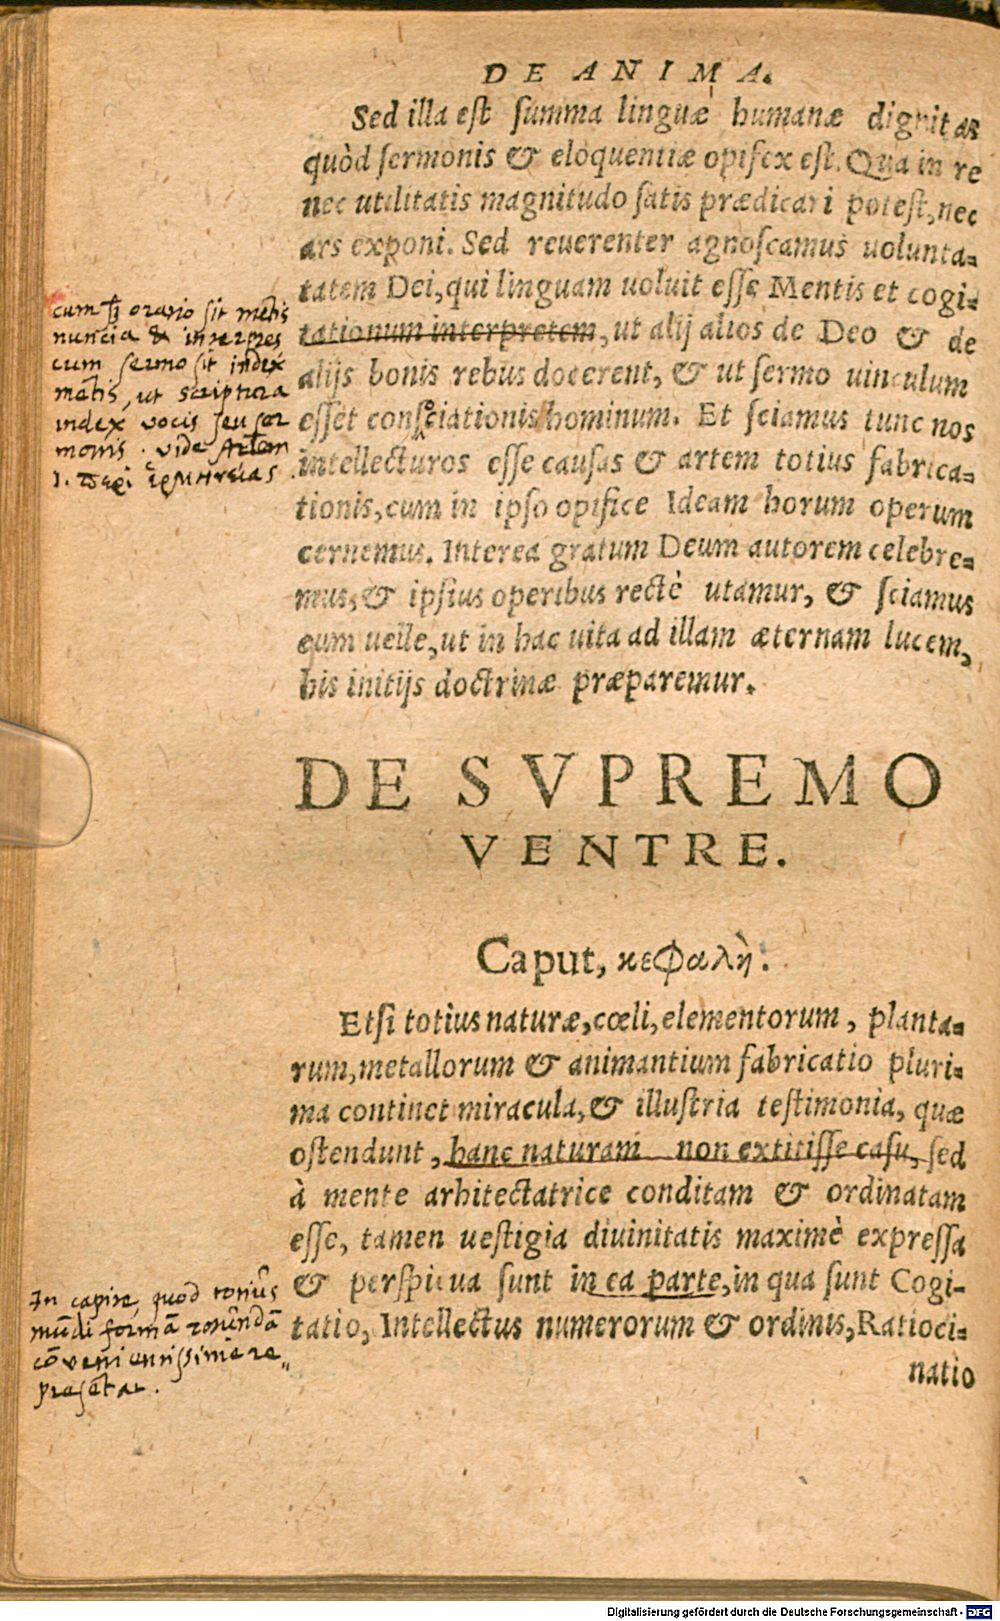 DE ANIMA.
Sed illa est summa linguæ humanæ dignitas
quòd sermonis & eloquentiæ opifex est. Qua in re
nec utilitatis magnitudo satis prædicari potest, nec
ars exponi. Sed reuerenter agnoscamus uolunta=
tatem Dei, qui linguam uoluit esse Mentis et cogi=
tationum interpretem, ut alij alios de Deo & de
alijs bonis rebus docerent, & ut sermo uinculum
esset consciationis hominum. Et sciamus tunc nos
intellecturos esse causas & artem totius fabrica=
tionis, cum in ipso opifice Ideam horum operum
cernemus. Interea gratum Deum autorem celebre=
mus, & ipsius operibus rectè utamur, & sciamus
eum uelle, ut in hac uita ad illam æternam lucem,
his initijs doctrinæ præparemur.
cum oratio sit mētis
nuncia & interpres
cum sermo sit index
mētis, ut scriptura
index vocis seu ser
monis. vide
1. περὶ ἑρμηνείας.
DE SVPREMO
VENTRE.
Caput, κεφαλὴ.
Etsi totius naturæ, cœli, elementorum, planta=
rum, metallorum & animantium fabricatio pluri=
ma continet miracula, & illustria testimonia, quæ
ostendunt, hanc naturam non extitisse casu, sed
à mente arhitectatrice conditam & ordinatam
esse, tamen uestigia diuinitatis maximè expressa
& perspicua sunt in ea parte, in qua sunt Cogi-
tatio, Intellectus numerorum & ordinis, Ratioci=
natio
In capite, quod totius
mūdi formā rotūndā
cōvenientissime re„
presētat.
Digitalisierung gefördert durch die Deutsche Forschungsgemeinschaft - DFG